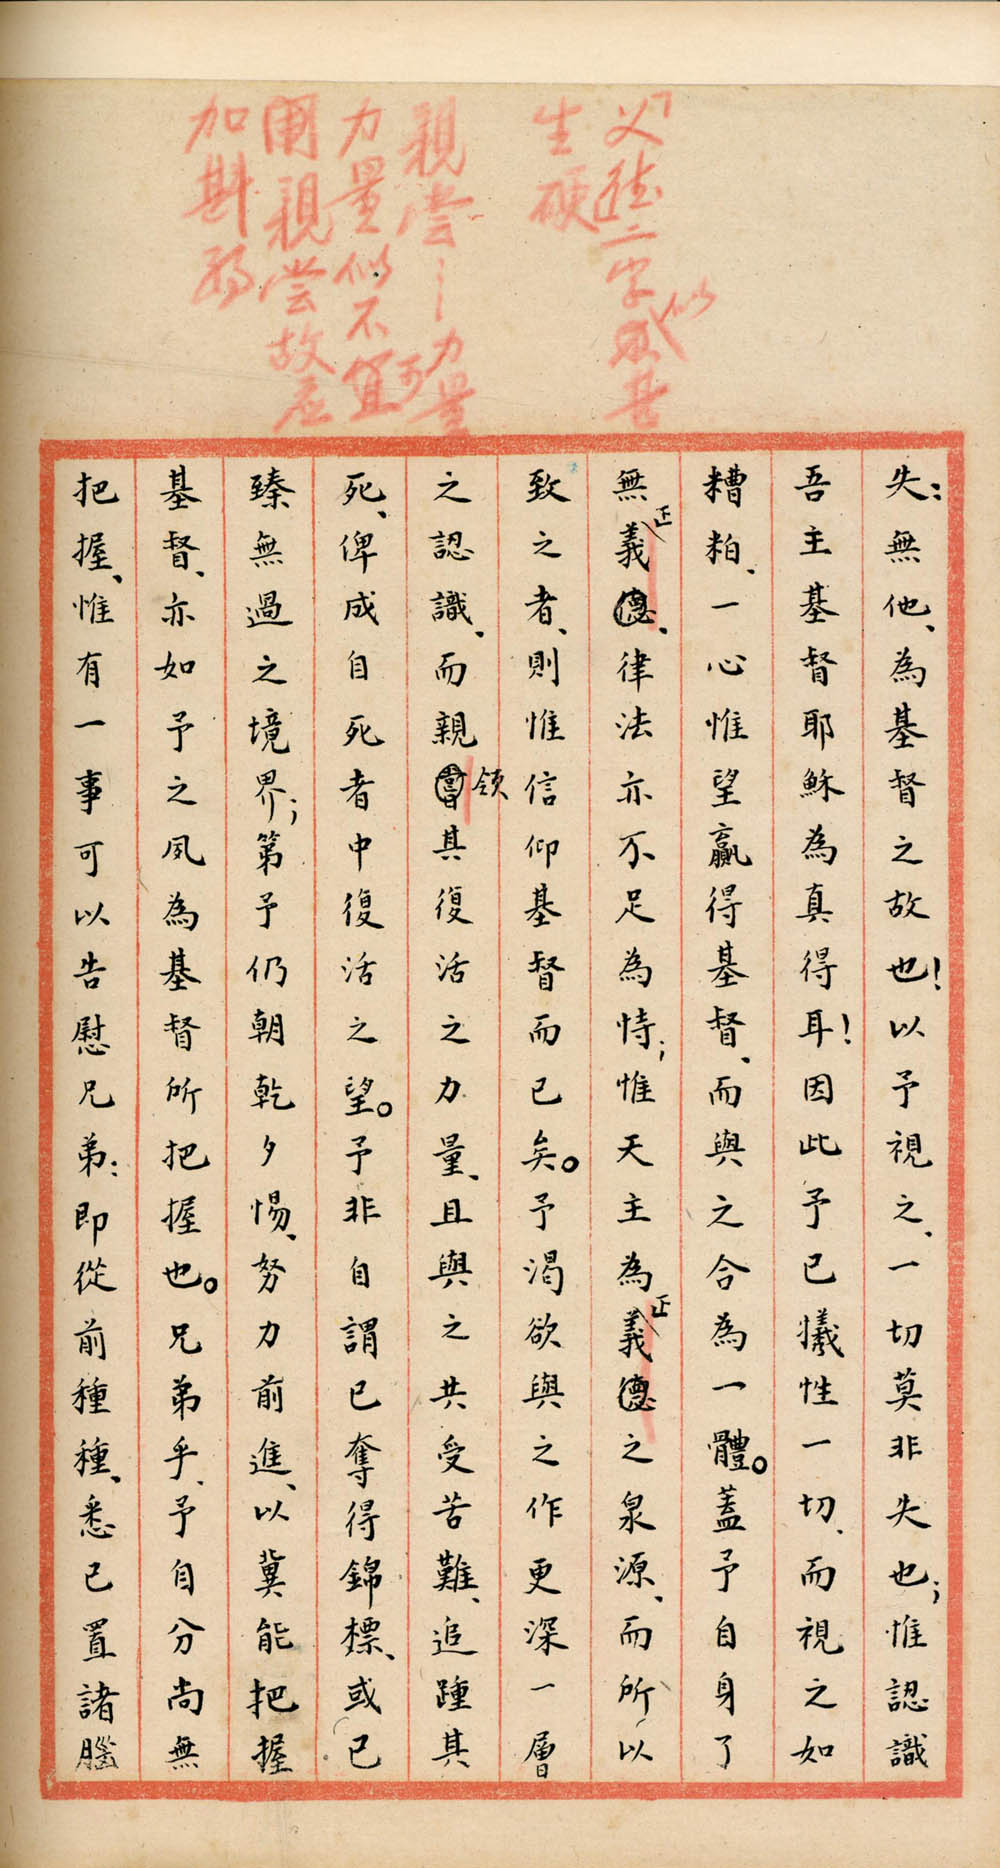 義德二字似甚
生硬
親嘗……力量
力量似不宜可
用親嘗故應
加斟酌
失：無他、為基督之故也！以予視之、一切莫非失也；惟認識
吾主基督耶穌為真得耳！因此予已犧性一切、而視之如
糟粕、一心惟望贏得基督、而與之合為一體。蓋予自身了
無正義德、律法亦不足為恃；惟天主為正義德之泉源、而所以
致之者、則惟信仰基督而已矣。予渴欲與之作更深一層
之認識、而親嘗領其復活之力量、且與之共受苦難、追踵其
死、俾成自死者中復活之望。予非自謂已奪得錦標、或已
臻無過之境界；第予仍朝乾夕惕、努力前進、以冀能把握
基督、亦如予之夙為基督所把握也。兄弟乎、予自分尚無
把握、惟有一事可以告慰兄弟：即從前種種、悉已置諸腦